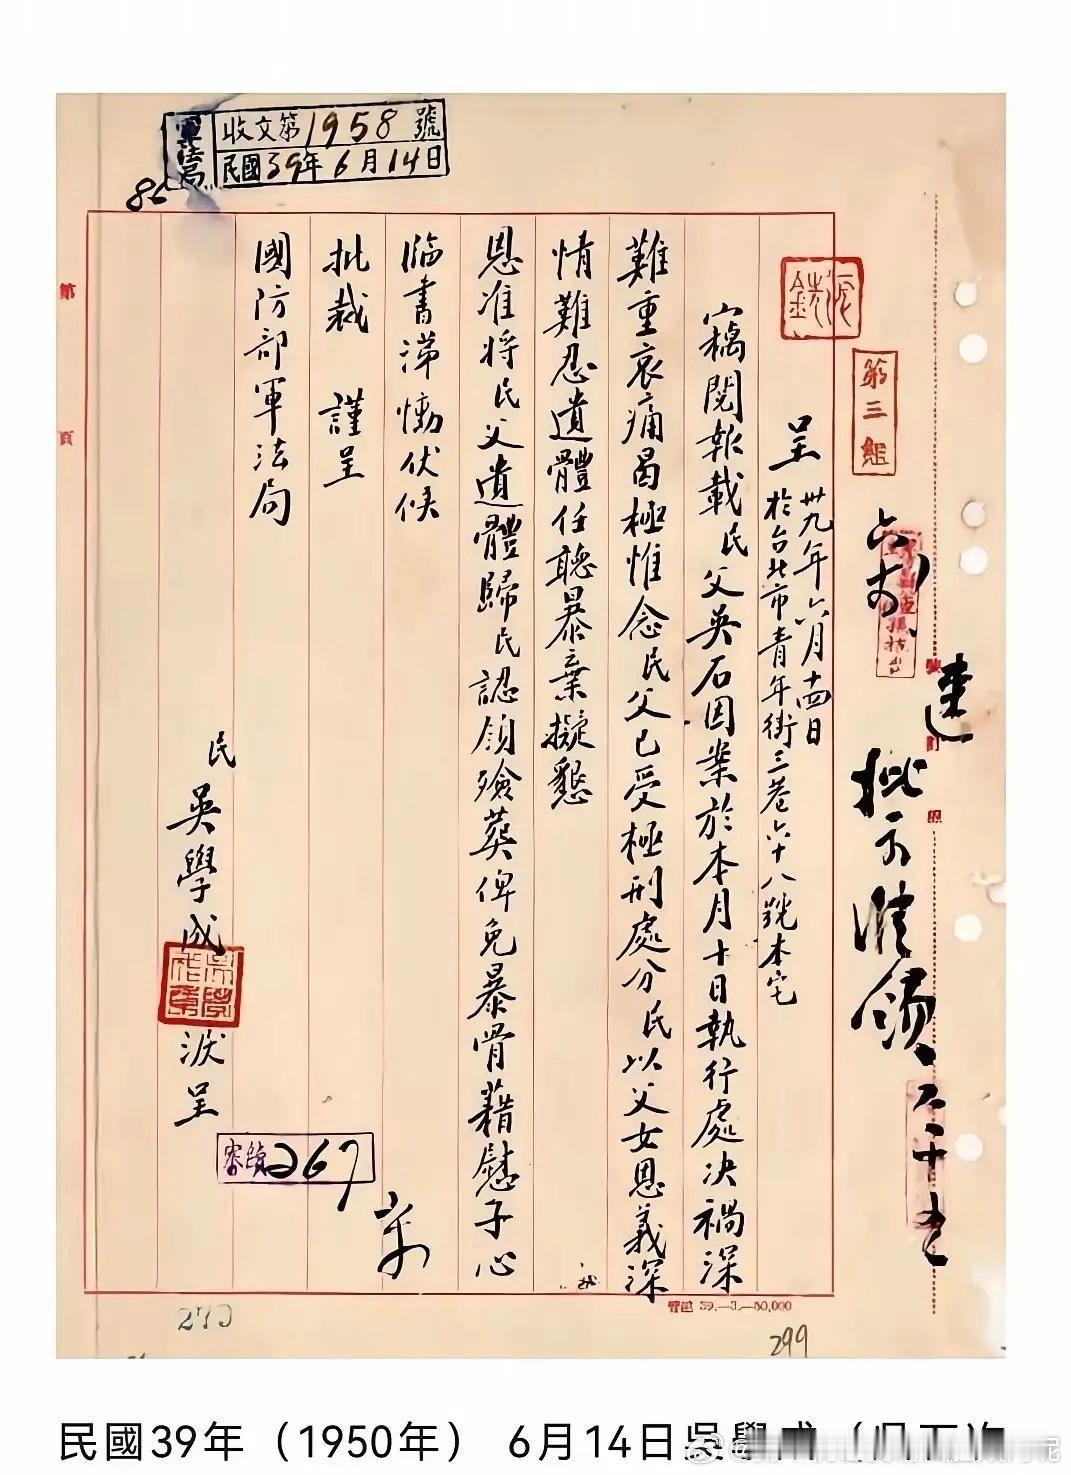 軍法局
收文第1958號
民國39年6月14日
第三組
呈
卅九年六月十四日
於台北市青年街三巷六十八號本宅
竊閱報載民父吳石因案於本月十日執行處決禍深
難重哀痛曷極惟念民父已受極刑處分民以父女恩義深
情難忍遺體任聽暴棄擬懇
恩准將民父遺體歸民認領殮葬俾免暴骨藉慰子心
臨書涕慟伏候
批裁 謹呈
國防部軍法局
民 吳學成 淚呈
267
第 頁
270
299
39.—3.—50,000
民國39年（1950年） 6月14日吳學成（吳石次